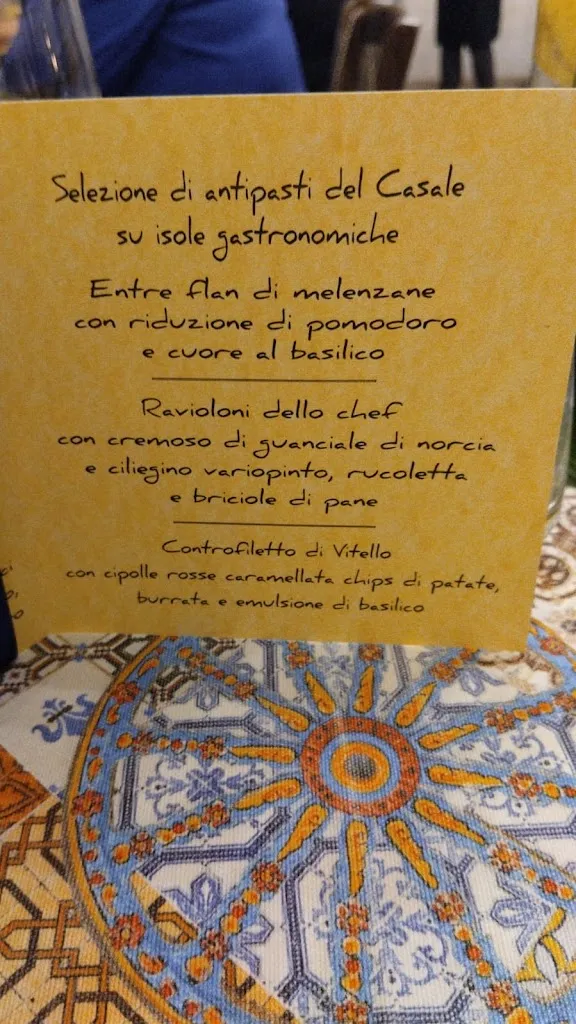 Selezione di antipasti del Casale
su isole gastronomiche
Entre flan di melenzane
con riduzione di pomodoro
e cuore al basilico
Ravioloni dello chef
con cremoso di guanciale di norcia
e ciliegino variopinto, rucoletta
e briciole di pane
Controfiletto di Vitello
con cipolle rosse caramellata chips di patate,
burrata e emulsione di basilico